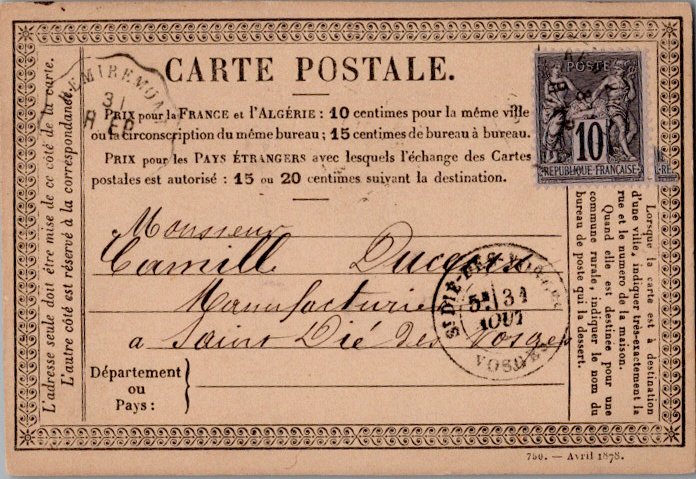 CARTE POSTALE.
PRIX pour la FRANCE et l'ALGÉRIE : 10 centimes pour la même ville
ou la circonscription du même bureau ; 15 centimes de bureau à bureau.
PRIX pour les PAYS ÉTRANGERS avec lesquels l'échange des Cartes
postales est autorisé : 15 ou 20 centimes suivant la destination.
Monsieur
Camille
Manufacturier
a Saint Dié des Vosges
Département
ou
Pays :
L'adresse seule doit être mise de ce côté de la carte.
L'autre côté est réservé à la correspondance.
POSTE
10
REPUBLIQUE FRANÇAISE
Lorsque la carte est à destination
d'une ville, indiquer très-exactement la
rue et le numéro de la maison.
Quand elle est destinée pour une
commune rurale, indiquer le nom du
bureau de poste qui la dessert.
31
ST DIÉ
5E 31
AOUT
VOSGES
750. — Avril 1878.